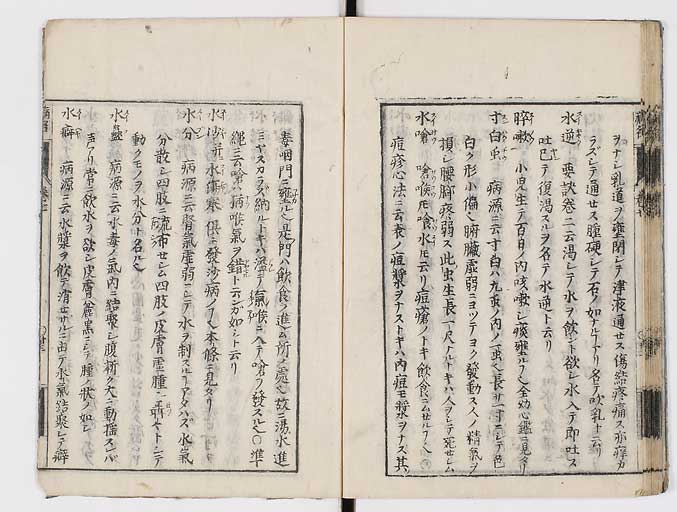 ヲナシ乳道ヲ壅閉シテ津液通セス傷結疼痛ス亦痒カ
ラズシテ通セス腫硬シテ石ノ如ナルナリ名テ吹乳ト云リ
水逆 要訣巻二云渇シテ水ヲ飲ント欲シ水入テ即吐ス
吐已テ復渇スルヲ名テ水逆ト云リ
小児生テ百日ノ内咳嗽シ痰壅ルヽ全幼心鑑ニ見タリ
寸白虫 病源ニ云寸白ハ九虫ノ内ノ一虫長サ一寸ニシテ色
白ク形小褊シ腑臓虚弱ニヨツテヨク發動ス人ノ精氣ヲ
損シ腰脚疼弱ス此虫生長一尺ナルトキハ人ヲシテ死セシム
水嗆 嗆喉 嗆水 云リ痘瘡ノトキ飲食ニムセルヽ
痘疹心法ニ云表ノ痘漿ヲナストキハ内痘モ漿ヲナス其
毒咽門ニ壅ル是門ハ飲食ノ進ム所ノ處故ニ湯水進
ミヤスカラズ納ルトキハ溢テ氣喉ニ入テ嗆ヲ發スル○準
繩ニ云嗆ハ病喉氣ヲ錯ト云ンガ如シト云リ
水沙 水傷寒 倶ニ發沙病ノ本條ニ見タリ
水分 病源ニ云腎氣虚弱ニシテ水ヲ制スルアタハズ水氣
分散シ四肢ニ流沛セシ四肢ノ皮膚虚腫シ聶々トシテ
動クモノヲ水分ト名ル
水蠱 病源ニ云水毒ノ氣内ニ結聚シ腹漸ク大ニ動揺スレバ
声アリ常ニ飲水ヲ欲シ皮膚麁黒ニシテ腫ノ状ノ如シ
水癖 病源ニ云水漿ヲ飲テ消セサルニ由テ水氣結聚シテ癖